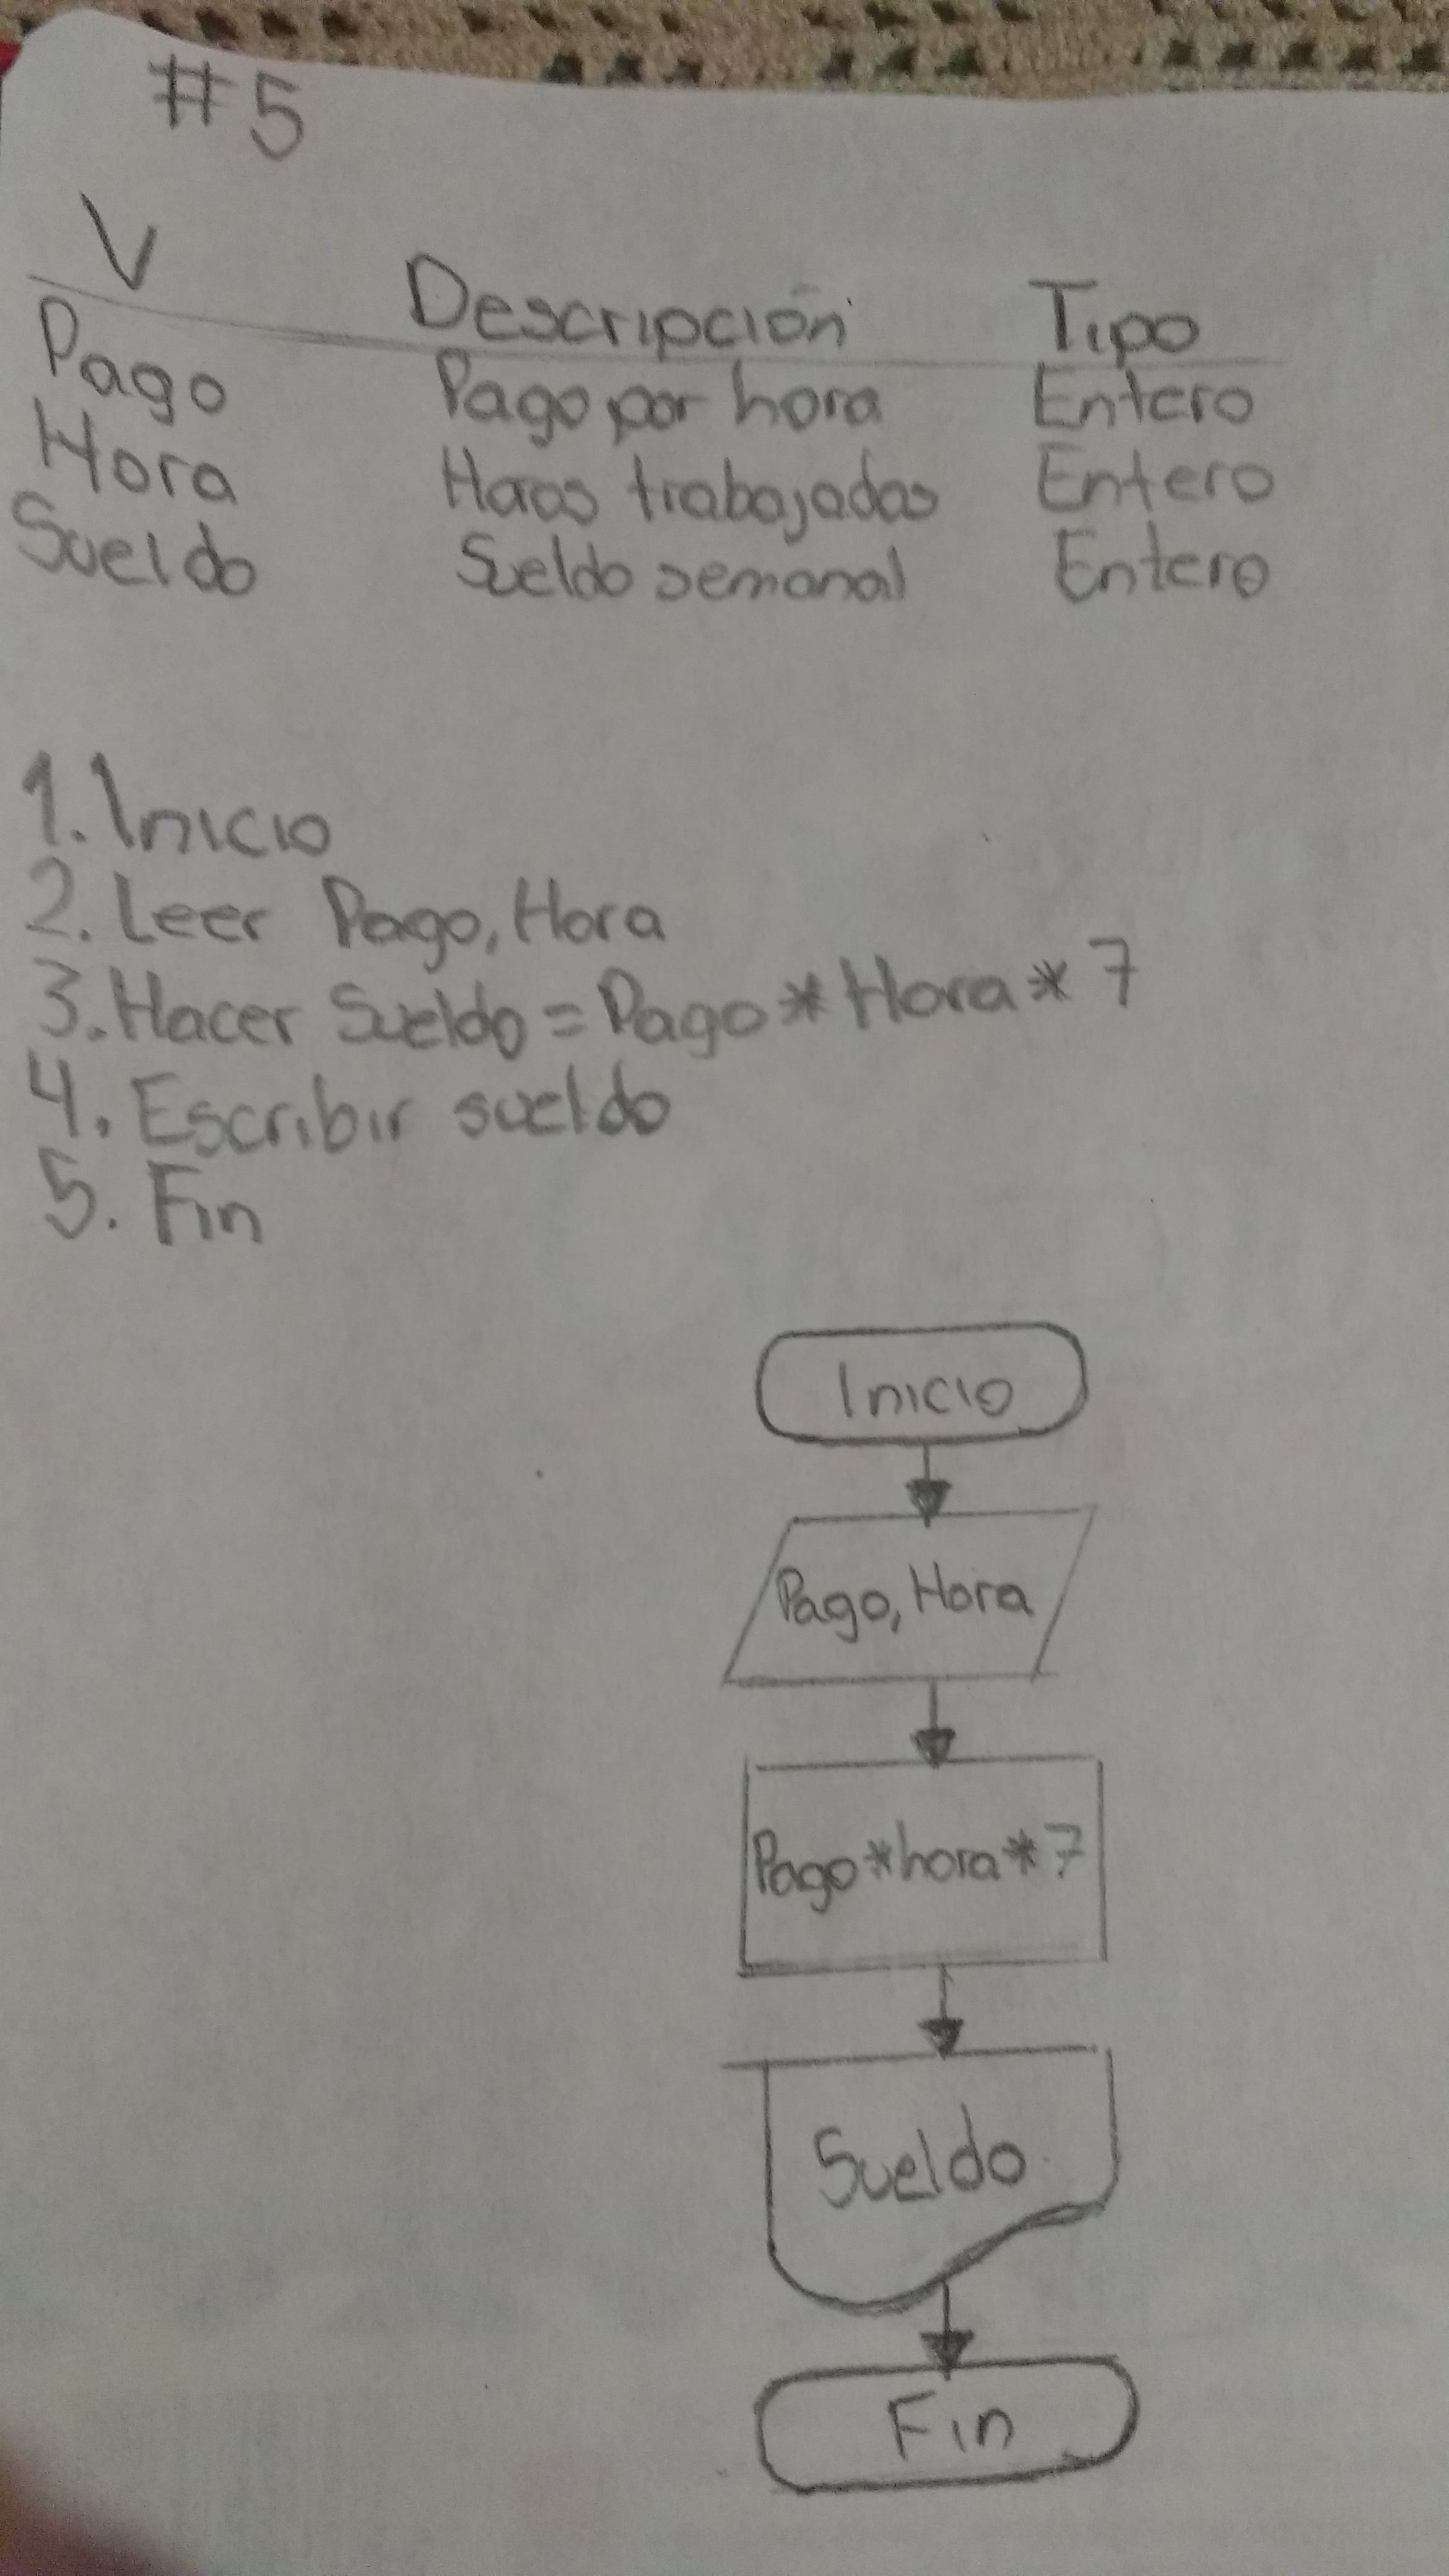 #5
V Descripción Tipo
Pago Pago por hora Entero
Hora Horas trabajadas Entero
Sueldo Sueldo semanal Entero
1. Inicio
2. Leer Pago, Hora
3. Hacer Sueldo = Pago * Hora * 7
4. Escribir sueldo
5. Fin
Inicio
Pago, Hora
Pago * hora * 7
Sueldo
Fin